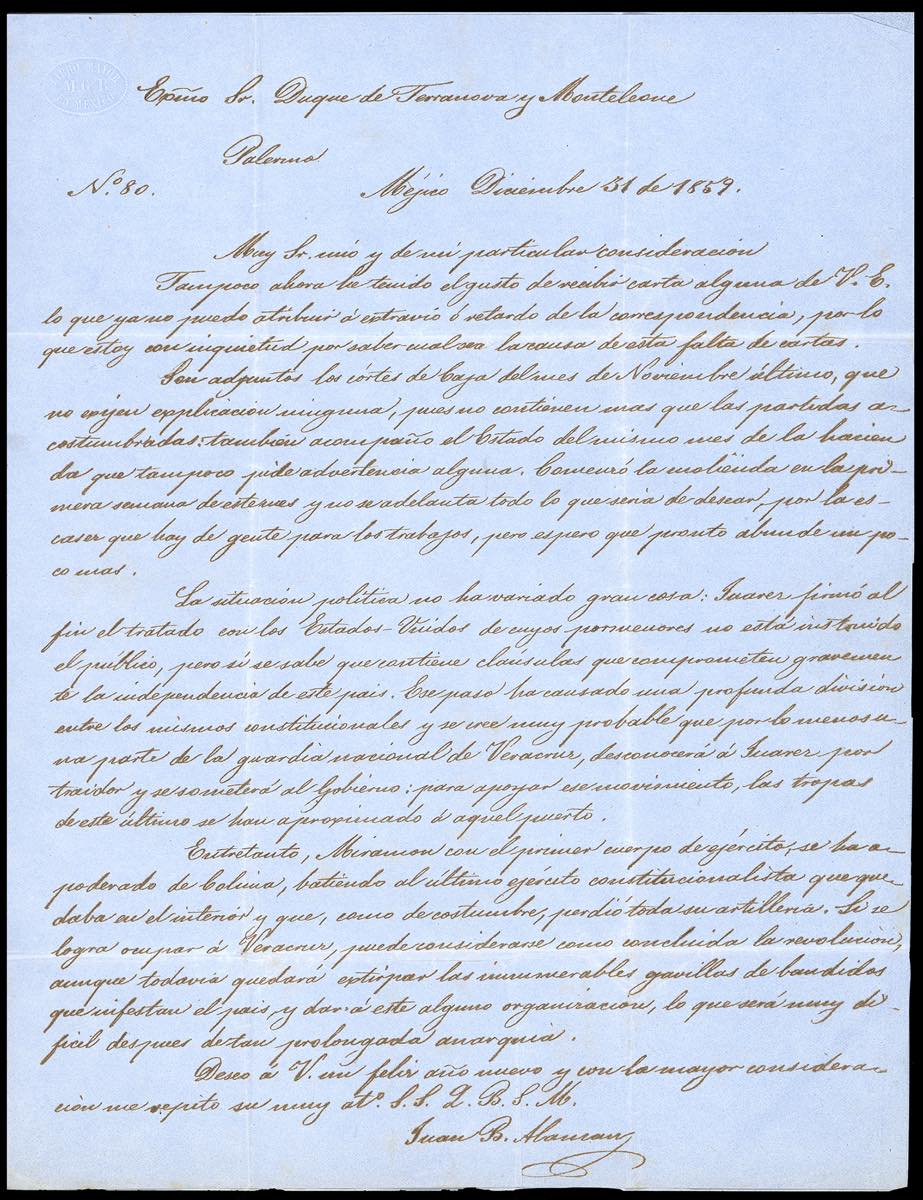 Exm̃o Sr. Duque de Terranova y Monteleone
Palermo
N.º 80.
Méjico Diciembre 31 de 1859.
Muy Sr. mio y de mi particular consideracion
Tampoco ahora he tenido el gusto de recibir carta alguna de V. E.
lo que ya no puedo atribuir á estravio ó retardo de la correspondencia, por lo
que estoy con inquietud por saber cual sea la causa de esta falta de cartas.
Son adjuntos los córtes de Caja del mes de Noviembre último, que
no exijen explicacion ninguna, pues no contienen mas que las partidas a-
costumbradas: tambien acompaño el Estado del mismo mes de la hacien
da que tampoco pide advertencia alguna. Comenzó la molienda en la pri-
mera semana de este mes y no se adelanta todo lo que seria de desear, por la es-
casez que hay de gente para los trabajos, pero espero que pronto abunde un po-
co mas.
La situacion politica no ha variado gran cosa: Juarez firmó al
fin el tratado con los Estados-Unidos de cuyos pormenores no está instruido
el público, pero si se sabe que contiene claúsulas que comprometen gravemen
te la independencia de este pais. Ese paso ha causado una profunda division
entre los mismos constitucionales y se cree muy probable que por lo menos u-
na parte de la guardia nacional de Veracruz, desconocerá á Juarez por
traidor y se someterá al Gobierno: para apoyar ese movimiento, las tropas
de este último se han aproximado á aquel puerto.
Entretanto, Miramon con el primer cuerpo de ejército, se ha a-
poderado de Colima, batiendo al último ejército constitucionalista que que-
daba en el interior y que, como de costumbre, perdió toda su artilleria. Si se
logra ocupar á Veracruz, puede considerarse como concluida la revolucion,
aunque todavia quedará extirpar las innumerables gavillas de bandidos
que infestan el pais, y dar á este alguno organizacion, lo que será muy di-
ficil despues de tan prolongada anarquia.
Deseo á V. un feliz año nuevo y con la mayor considera-
cion me repito su muy atº. S. S. Q. B. S. M.
Juan B. Alaman